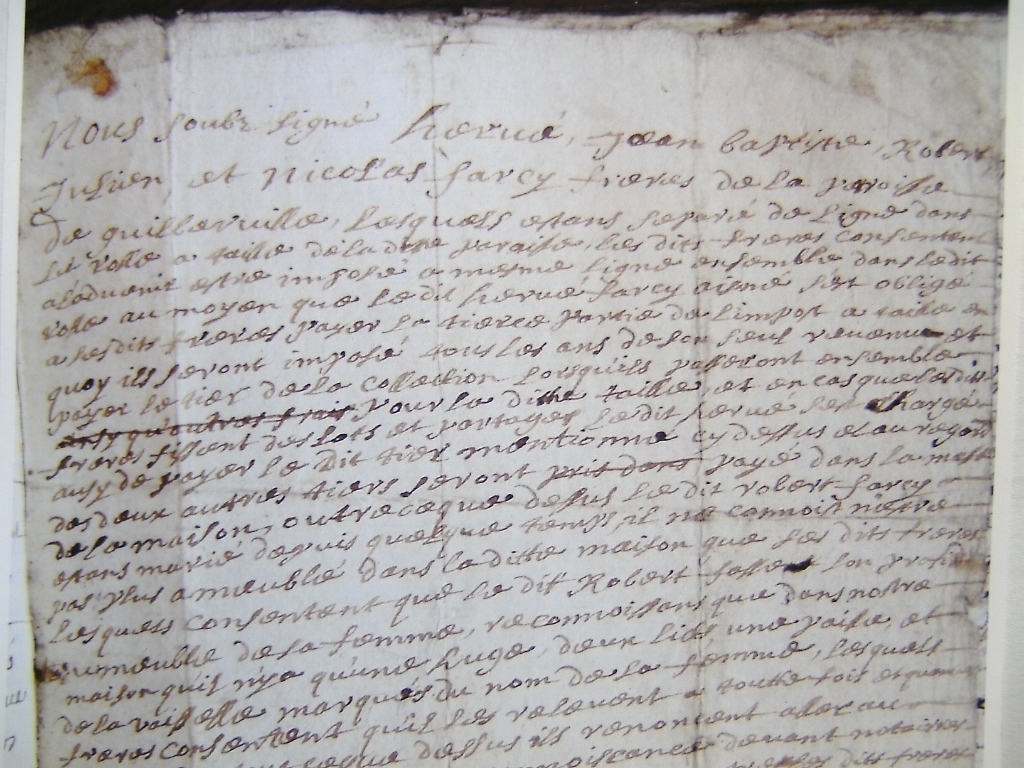 Nous soubz signé hervé, Jean baptiste, Robert
Julien et Nicolas farcy freres de la paroisse
de quillerville, lesquels estans separé de ligne dans
le rolle a taille de la ditte paroisse, les dits freres consentent
a l'advenir estre imposé a mesme ligne ensemble dans le dit
rolle au moyen que le dit hervé farcy aisné s'est obligé
a ses dits freres payer la tierce partie de l'impost a taille en
quoy ils seront imposé tous les ans de son seul revenu et
payer le tier de la collection lorsqu'ils passeront ensemble
ansy qu'autres frais pour la ditte taille, et en cas que les dits
freres fissent des lots et partages le dit hervé ser chargé
ausy de payer le dit tier mentionné cy dessus et au regard
des deux autres tiers seront prit dans payé dans la masse
de la maison, outre ceque dessus le dit robert farcy
estans marié depuis quelque temps, il ne connoist nestre
pas plus ameublé dans la ditte maison que ses dits freres
lesquels consentent que le dit Robert fasse son profit
du meuble de sa femme, reconnoissans que dans nostre
maison quil n'ya qu'une huge, deux lids une paise et
de la vaisselle marqués du nom de sa femme, lesquels
freres consentent qu'il les relevent a toutte fois et quan
ceque dessus ils renoncent aller au
devant notaires
dits freres